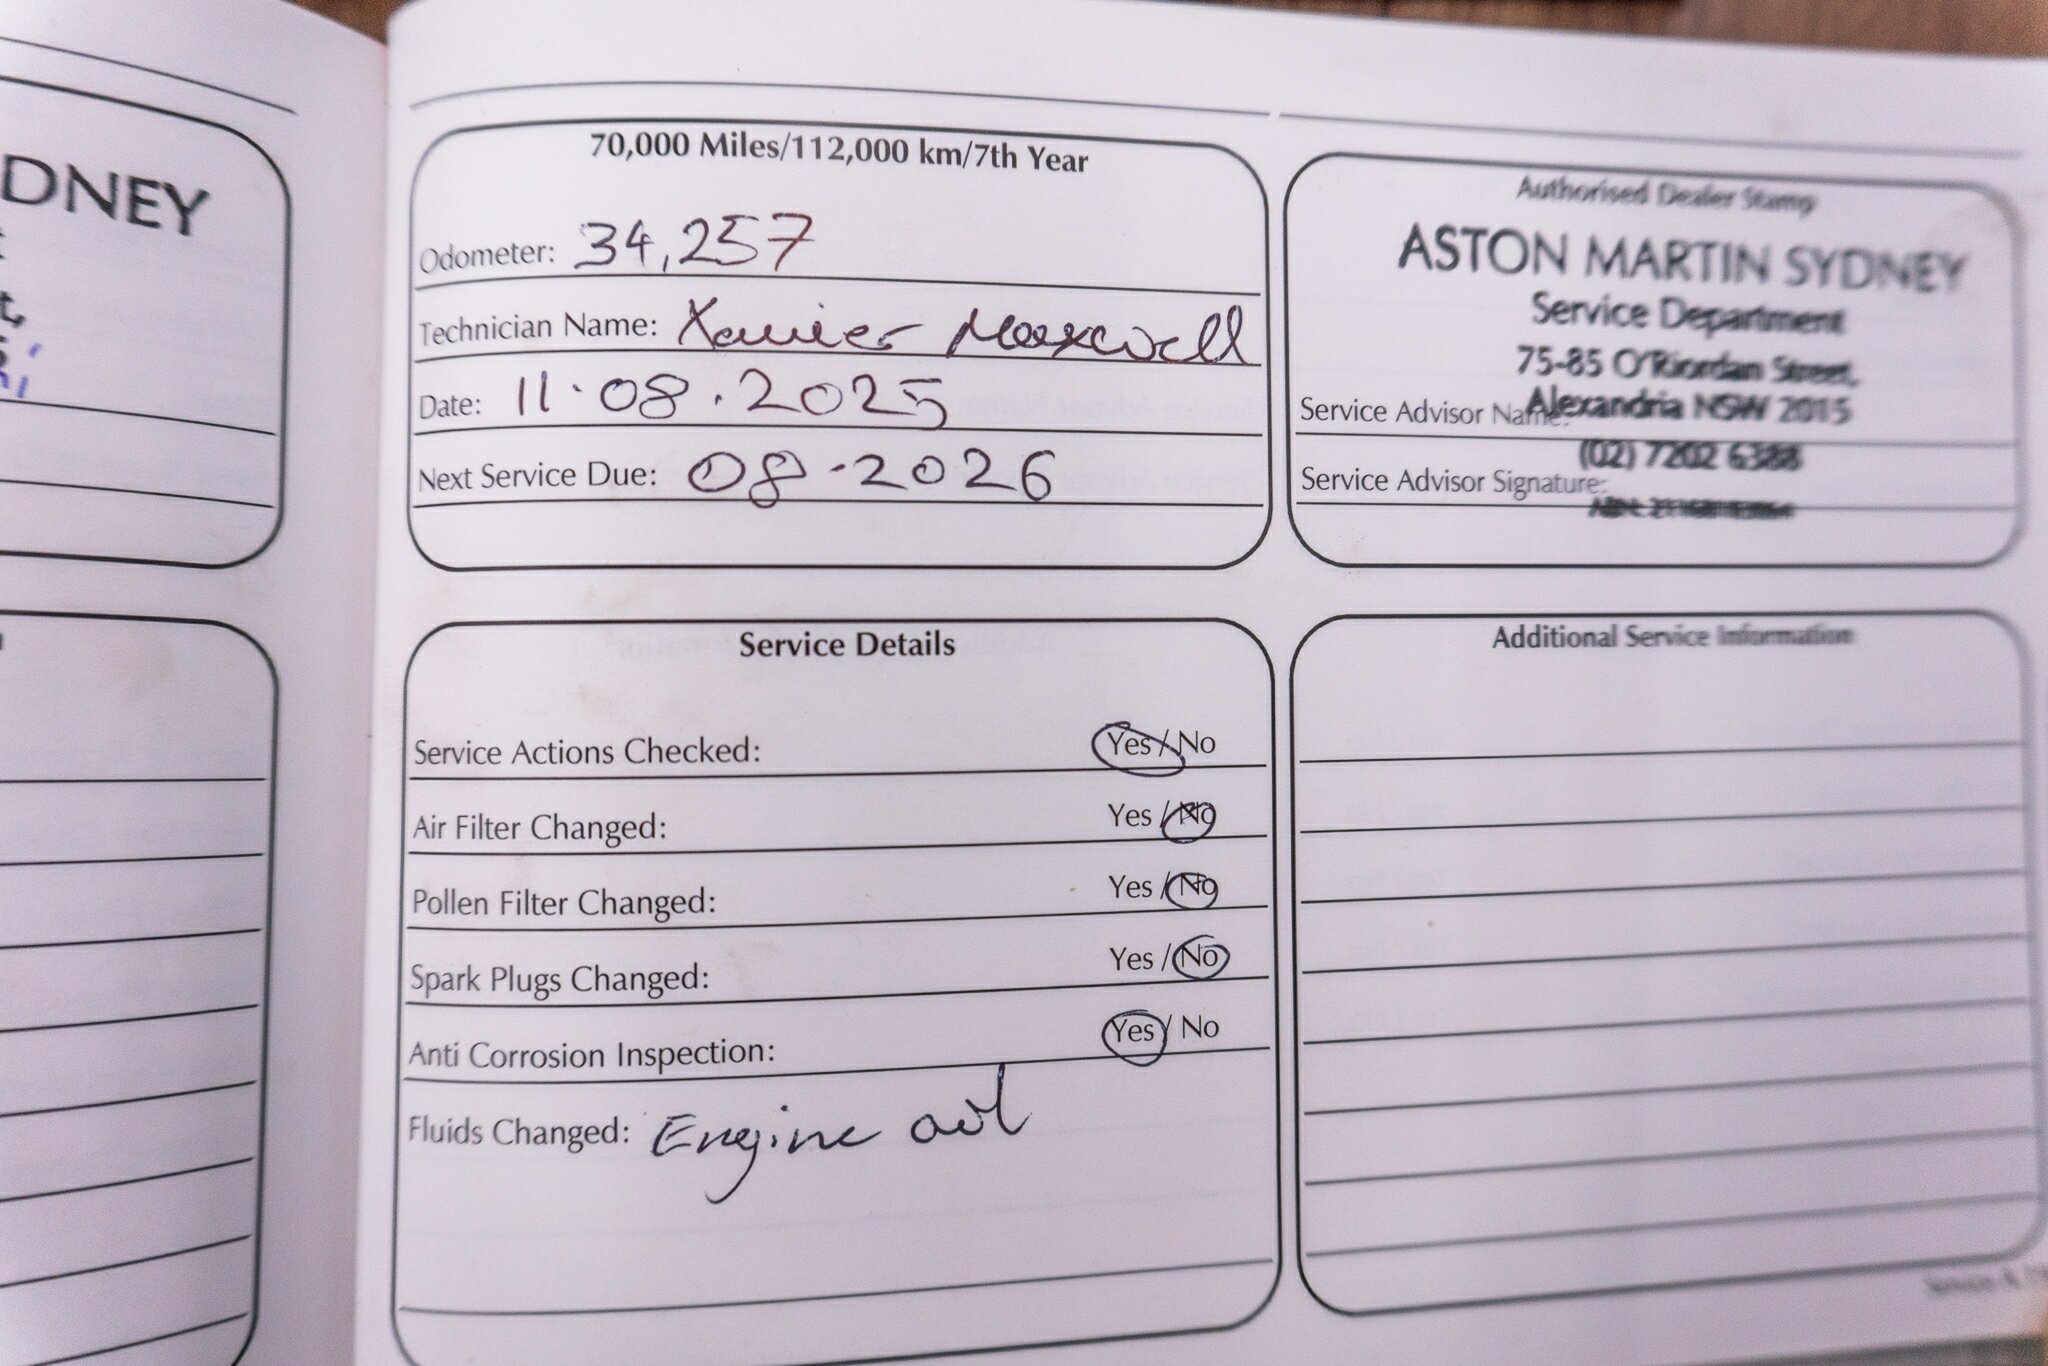 DNEY
70,000 Miles/112,000 km/7th Year
Odometer: 34,257
Technician Name: Xavier Maxwell
Date: 11.08.2025
Next Service Due: 08-2026
Authorised Dealer Stamp
ASTON MARTIN SYDNEY
Service Department
75-85 O'Riordan Street,
Alexandria NSW 2015
Service Advisor Name:
(02) 7202 6388
Service Advisor Signature:
Service Details
Service Actions Checked: Yes / No
Air Filter Changed: Yes / No
Pollen Filter Changed: Yes / No
Spark Plugs Changed: Yes / No
Anti Corrosion Inspection: Yes / No
Fluids Changed: Engine oil
Additional Service Information